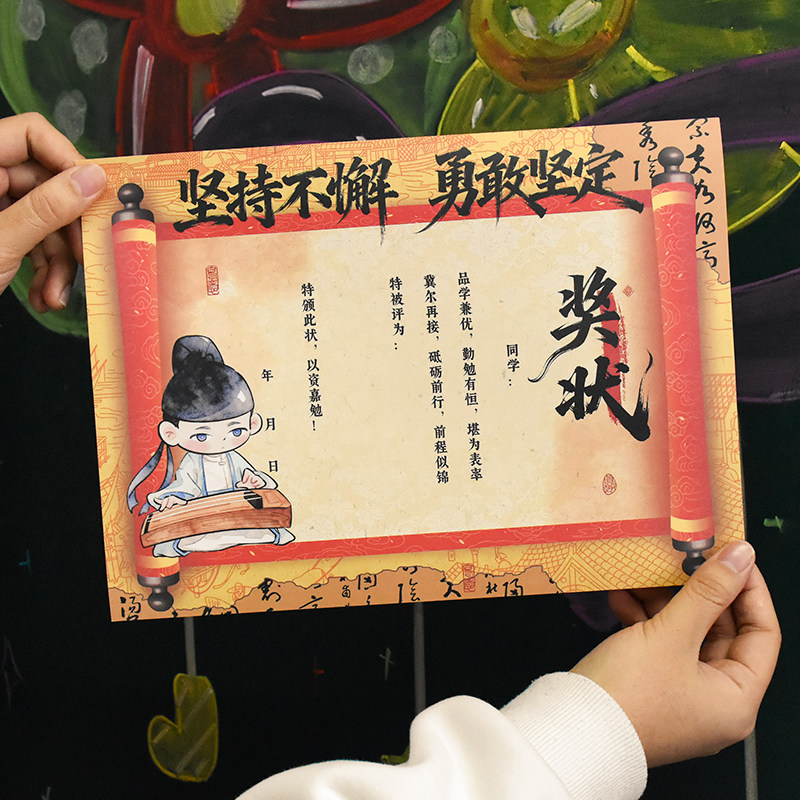 坚持不懈 勇敢坚定
奖状
同学：
品学兼优，勤勉有恒，堪为表率
冀尔再接，砥砺前行，前程似锦
特被评为：
特颁此状，以资嘉勉！
年 月 日